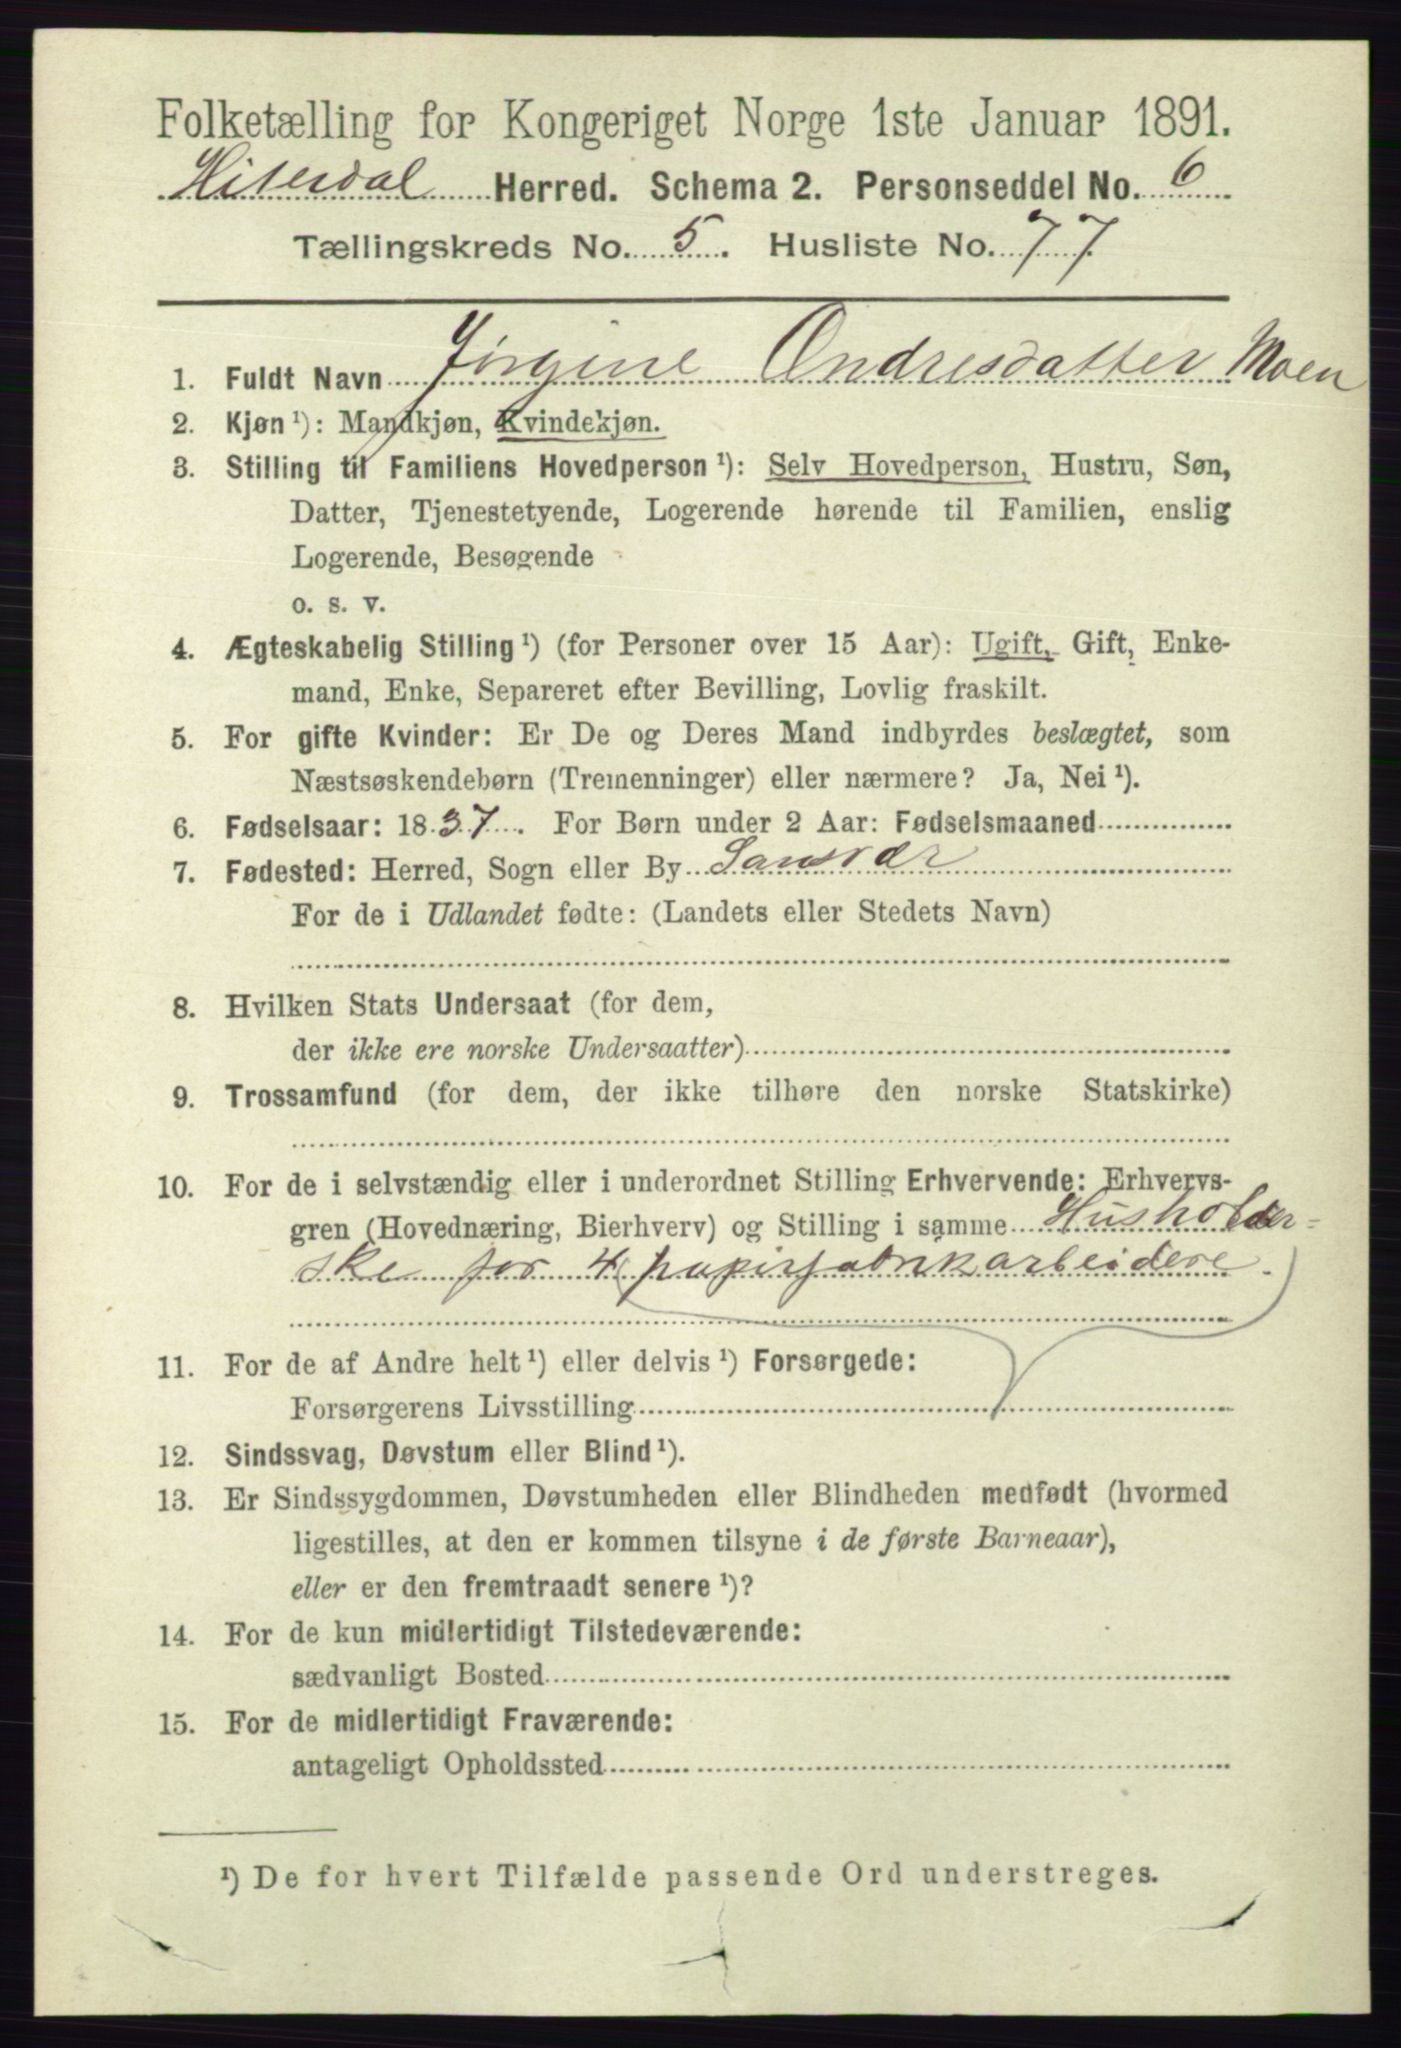 Folketælling for Kongeriget Norge 1ste Januar 1891.
Hiterdal Herred. Schema 2. Personseddel No. 6
Tællingskreds No. 5. Husliste No. 77
1. Fuldt Navn Jørgine Andresdatter Moen
2. Kjøn ¹): Mandkjøn, Kvindekjøn.
3. Stilling til Familiens Hovedperson ¹): Selv Hovedperson, Hustru, Søn,
Datter, Tjenestetyende, Logerende hørende til Familien, enslig
Logerende, Besøgende
o. s. v.
4. Ægteskabelig Stilling ¹) (for Personer over 15 Aar): Ugift, Gift, Enke-
mand, Enke, Separeret efter Bevilling, Lovlig fraskilt.
5. For gifte Kvinder: Er De og Deres Mand indbyrdes beslægtet, som
Næstsøskendebørn (Tremenninger) eller nærmere? Ja, Nei ¹).
6. Fødselsaar: 1837. For Børn under 2 Aar: Fødselsmaaned
7. Fødested: Herred, Sogn eller By Sansvær
For de i Udlandet fødte: (Landets eller Stedets Navn)
8. Hvilken Stats Undersaat (for dem,
der ikke ere norske Undersaatter)
9. Trossamfund (for dem, der ikke tilhøre den norske Statskirke)
10. For de i selvstændig eller i underordnet Stilling Erhvervende: Erhvervs-
gren (Hovednæring, Bierhverv) og Stilling i samme Husholder-
ske for 4 papirfabrikarbeidere.
11. For de af Andre helt ¹) eller delvis ¹) Forsørgede:
Forsørgerens Livsstilling
12. Sindssvag, Døvstum eller Blind ¹).
13. Er Sindssygdommen, Døvstumheden eller Blindheden medfødt (hvormed
ligestilles, at den er kommen tilsyne i de første Barneaar),
eller er den fremtraadt senere ¹)?
14. For de kun midlertidigt Tilstedeværende:
sædvanligt Bosted
15. For de midlertidigt Fraværende:
antageligt Opholdssted
¹) De for hvert Tilfælde passende Ord understreges.